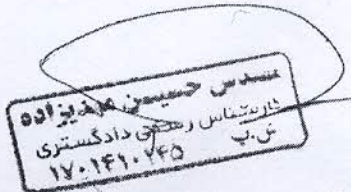 مهندس حسین مهدیزاده
کارشناس رسمی دادگستری
ش.پ
۱۷۰۱۴۱۰۲۴۵